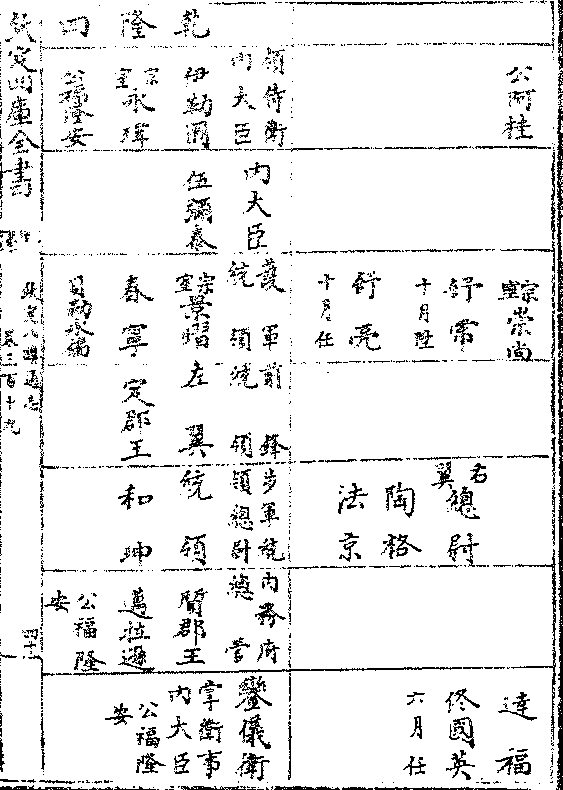 公阿桂
宗室崇尚
舒常
十月陞
舒亮
十月任
右翼總尉
陶格
法京
達福
佟國英
六月任
乾隆四
領侍衛
內大臣
伊勒圖
宗室永瑋
公福隆安
內大臣
伍彌泰
護軍
統領
宗室景熠
春寧
貝勒永
前鋒
統領
左翼
定郡王
步軍統
領總尉
統領
和珅
內務府
總管
質郡王
邁拉遜
公福隆安
鑾儀衛
掌衛事
內大臣
公福隆安
欽定四庫全書
欽定八旗通志
卷三百十九